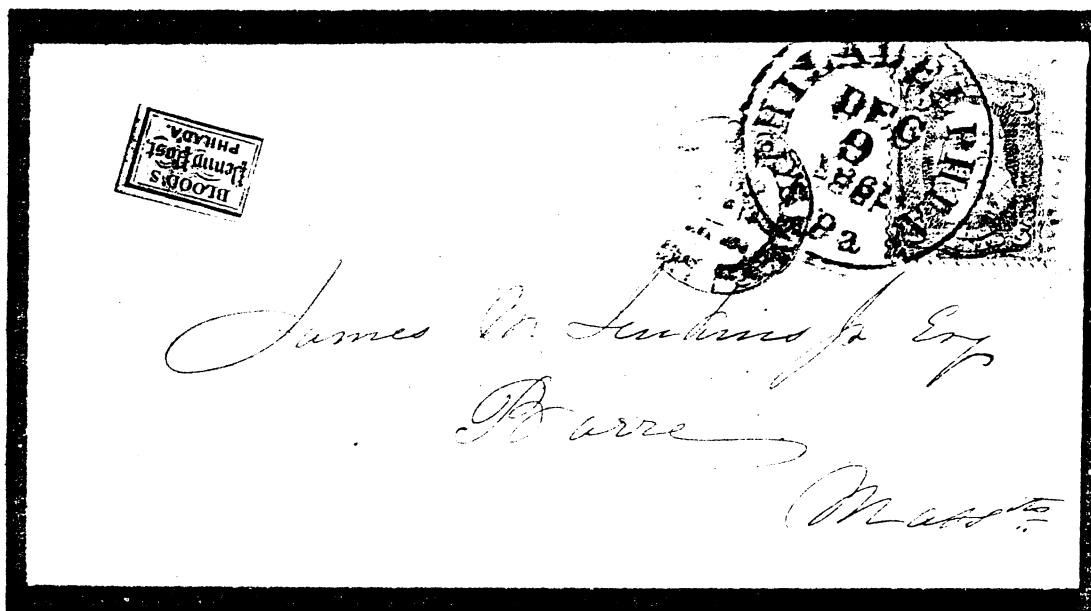 BLOOD'S
Penny Post
PHILADA.
PHILADELPHIA
DEC
9
1861
Pa
James M Jenkins Jr Esq
Barre
Massts